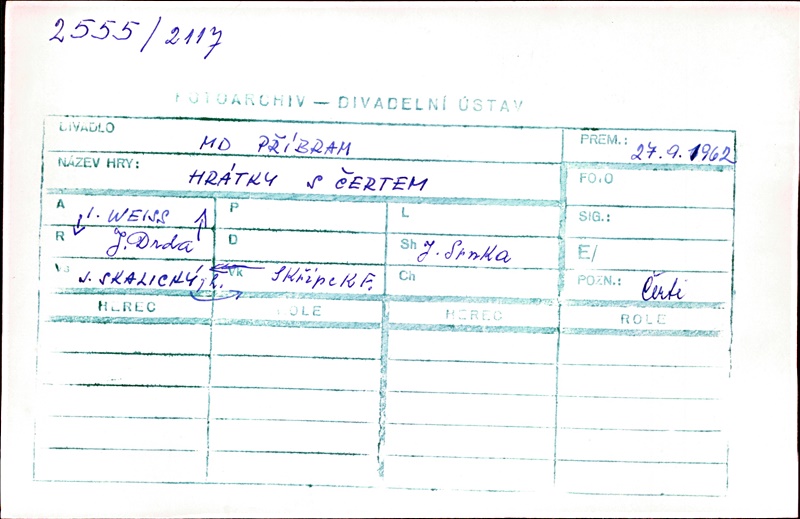 2555/2117
FOTOARCHIV — DIVADELNÍ ÚSTAV
DIVADLO MD PŘÍBRAM PREM.: 27.9.1962
NÁZEV HRY: HRÁTKY S ČERTEM FOTO
A J. WEISS P L SIG.:
R J. Drda D Sh J. Srnka E/
J. SKALICKÝ, Z. Vk Skřípek F. Ch POZN.: Čerti
HEREC ROLE HEREC ROLE